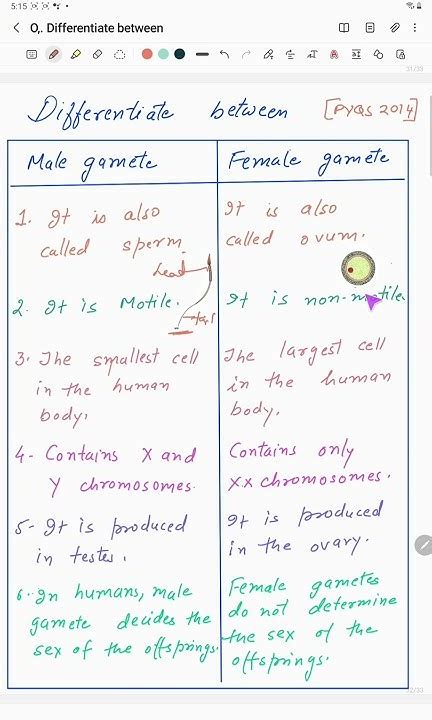 5:15
O,. Differentiate between
31/33
Differentiate between [PYQS 2014]
Male gamete
Female gamete
1. It is also
called sperm.
It is also
called ovum.
head
tail
2. It is Motile.
It is non-motile.
3. The smallest cell
in the human
body.
The largest cell
in the human
body.
4- Contains X and
Y chromosomes.
Contains only
XX chromosomes.
5- It is produced
in testes.
It is produced
in the ovary.
6. In humans, male
gamete decides the
sex of the offsprings.
Female gametes
do not determine
the sex of the
offsprings.
32/33